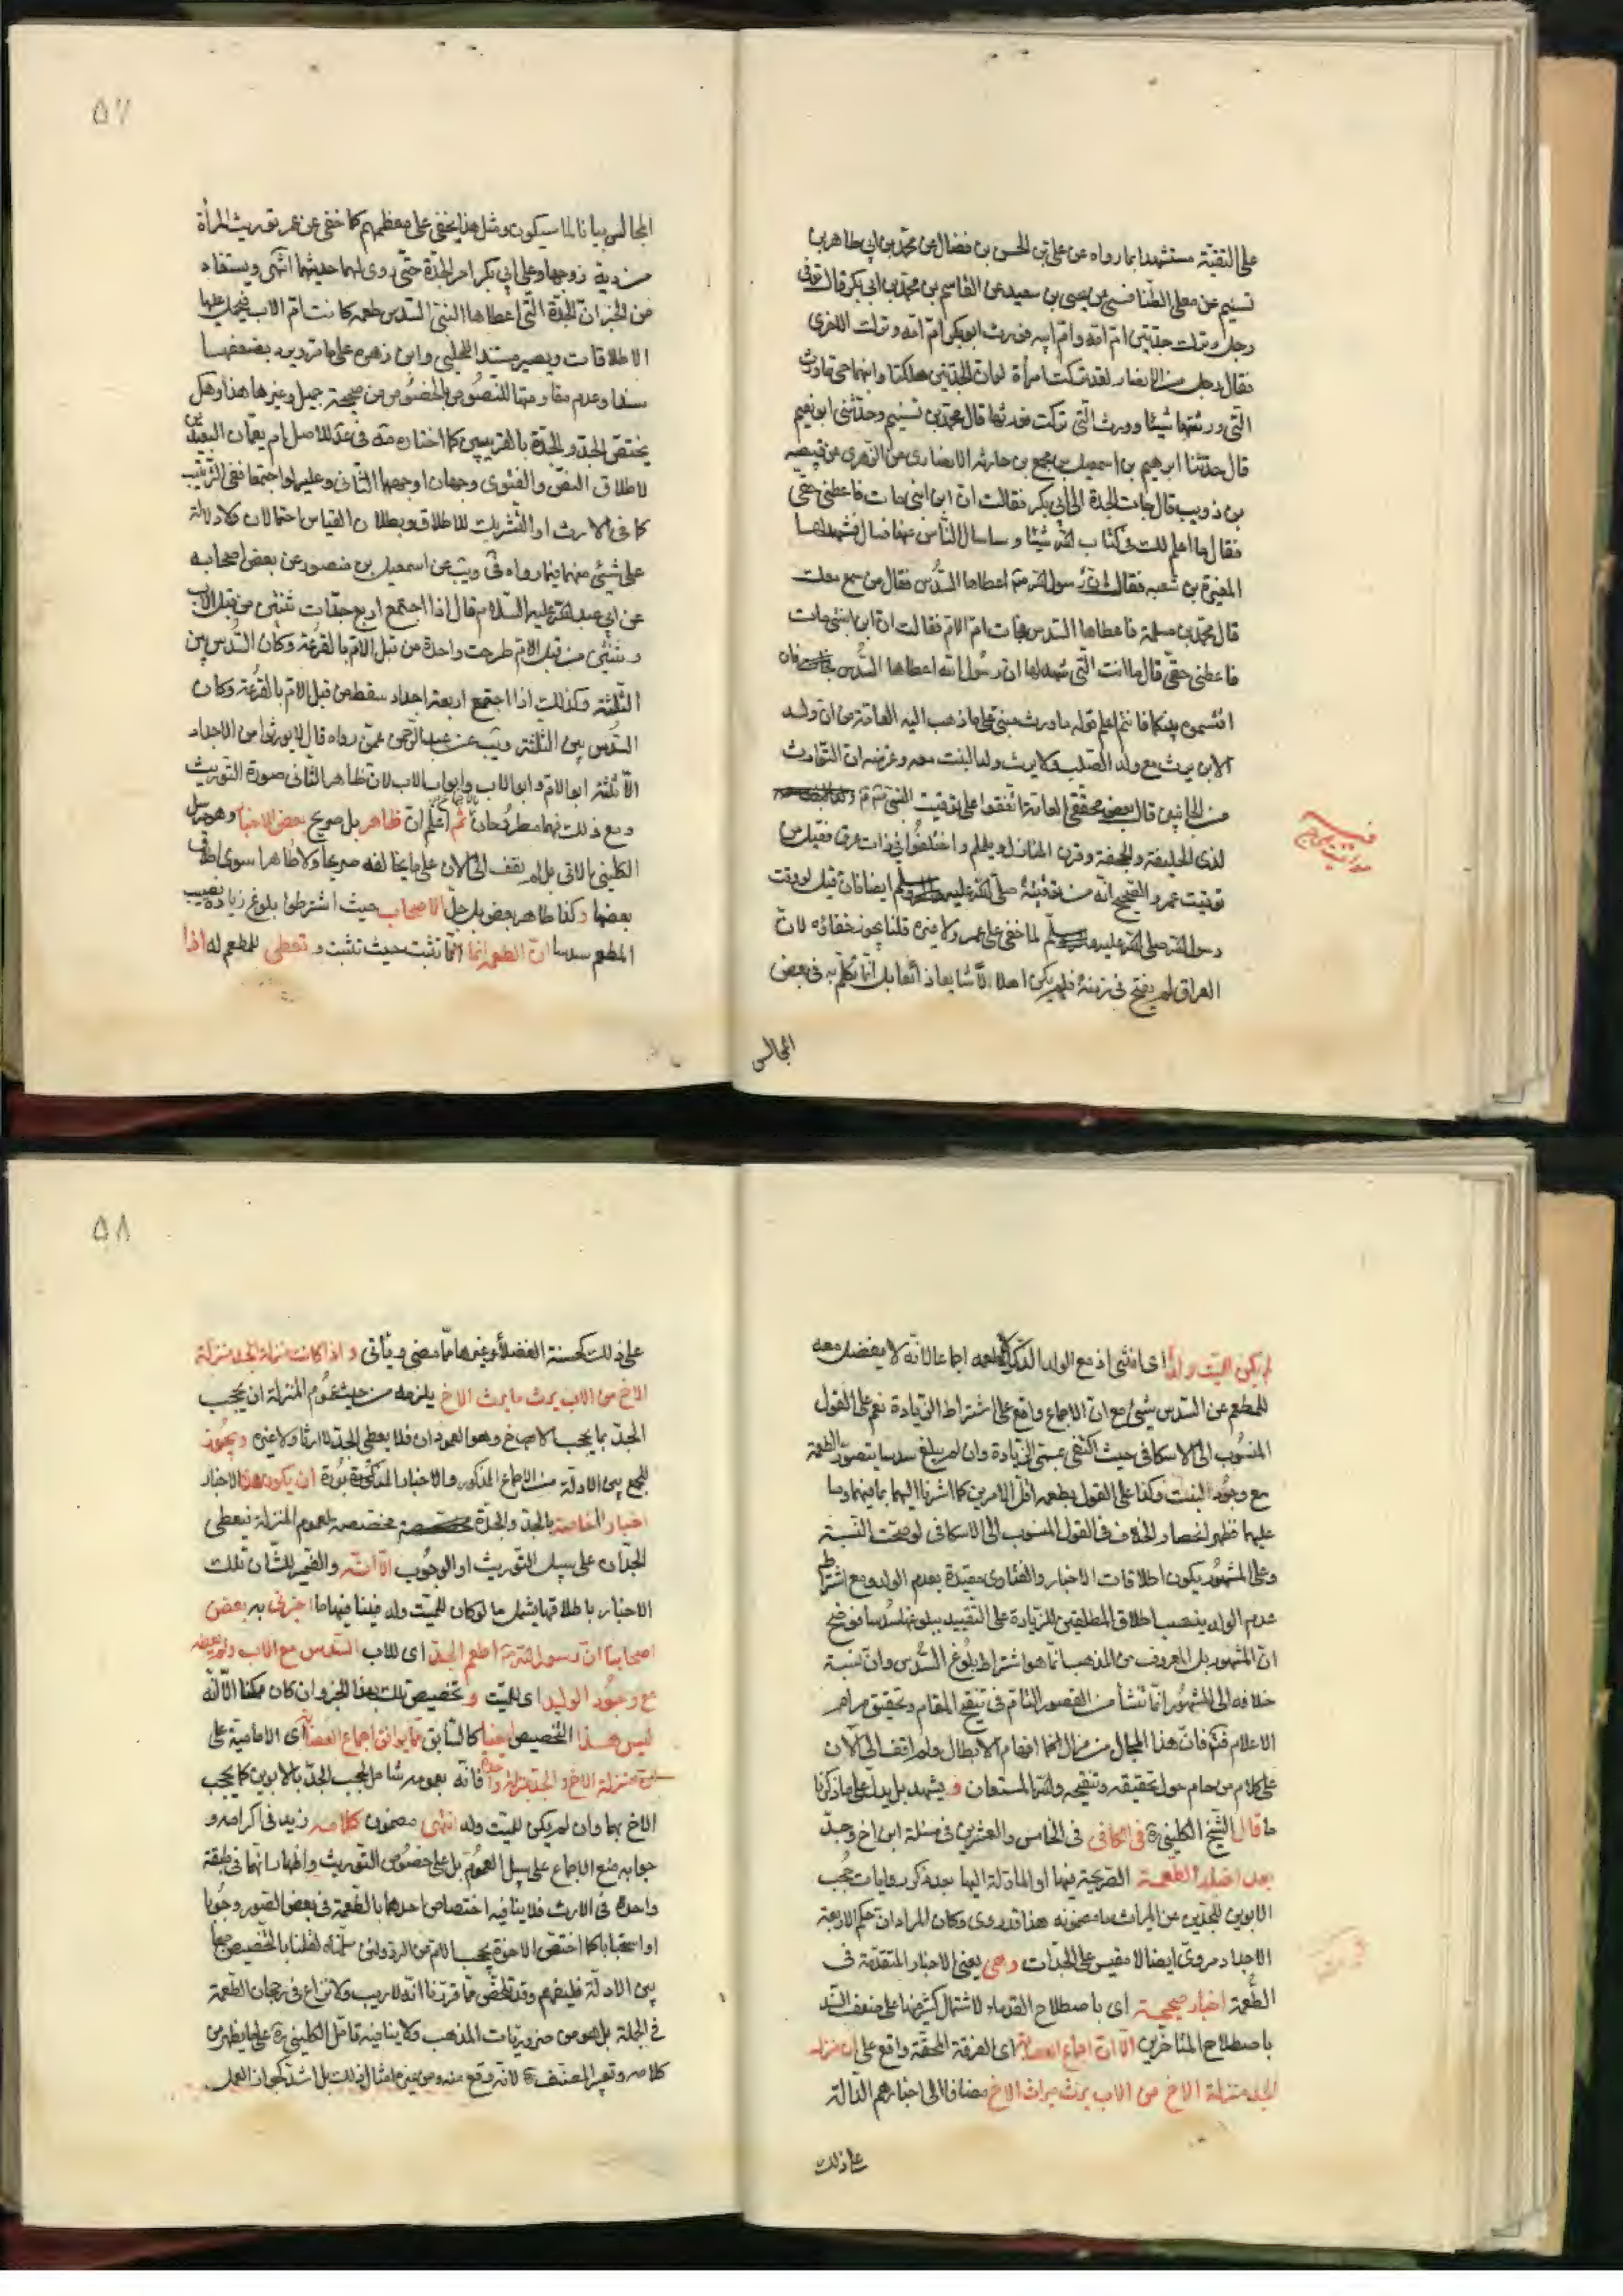 على التقية مستشهدا بما رواه عن علي بن الحسن بن فضال عن محمد بن ابي طاهر بن
تسنيم عن معلى الطنافسي عن يحيى بن سعيد عن القاسم بن محمد بن ابي بكر قال توفى
رجل وترك جدتين ام امه وام ابيه فورث ابو بكر ام امه وترك الاخرى
فقال رجل من الانصار لقد تركت امرأة لو ان الجدتين هلكتا وابنهما حي ما ورث
التي ورثتها شيئا وورث التي تركت فورثها قال محمد بن تسنيم وحدثني ابو نعيم
قال حدثنا ابرهيم بن اسمعيل بن مجمع بن حارثه الانصارى عن الزهرى عن قبيصه
بن ذويب قال جات الجدة الى ابي بكر فقالت ان ابن ابنى مات فاعطنى حقى
فقال ما اعلم لك في كتاب الله شيئا وساسال الناس عنها فسال فشهد لها
المغيرة بن شعبه فقال ان رسول الله اعطاها السدس فقال من سمع معك
قال محمد بن مسلمة فاعطاها السدس فجات ام الام فقالت ان ابن ابنتى مات
فاعطنى حقى قال ما انت التى شهد لها ان رسول الله اعطاها السدس فان
اقتسموه بينكما فانتم اعلم قوله ما ورث مبنى على ما ذهب اليه العامة من ان ولد
الابن يرث مع ولد الصلب ولا يرث ولد البنت معه وغرضه ان التوارث
من الجانبين قال بعض محققى العامة اتفقوا على توقيت النبى
لذى الحليفة والجحفة وقرن المنازل ويلملم واختلفوا فى ذات عرق فقيل من
توقيت عمر والصحيح انه من توقيته صلى الله عليه وسلم ايضا فان قيل لو وقت
رسول الله صلى الله عليه وسلم لما خفى على عمر ولا غيره قلنا يجوز خفاؤه لان
العراق لم يفتح فى زمنه فلم يكن اهلا الا شايعا ذائعا بل انما تكلم به فى بعض
المجالس
٥٧
المجالس بيانا لما سيكون ومثل هذا يخفى على معظمهم كما خفى عن عمر توريث المرأة
من دية زوجها وعلى ابي بكر امر الجدة حتى روى لهما حديثهما انتهى ويستفاد
من الخبر ان الجدة التى اعطاها النبى السدس طعمه كانت ام الاب فيحمل عليها
الاطلاقات ويصير مستند الحلبى وابن زهره على ما تردد بضعفها
سندا وعدم مقاومتها للنصوص بالخصوص من صحيحة جميل وغيرها هذا وهل
يختص الجد والجدة بالقريبين كما اختاره فى عدة للاصل ام يعمان البعيدين
لاطلاق النص والفتوى وجهان اوجههما الثانى وعليه لو اجتمعا ففى الترتيب
كما فى الارث او التشريك للاطلاق وبطلان القياس احتمالان ولا دلالة
على شئ منهما فيما رواه فى ويب عن اسمعيل بن منصور عن بعض اصحابه
عن ابي عبد الله عليه السلام قال اذا اجتمع اربع جدات ثنتين من قبل الاب
وثنتين من قبل الام طرحت واحدة من قبل الام بالقرعة وكان السدس بين
الثلثة وكذلك اذا اجتمع اربعة اجداد سقط من قبل الام بالقرعة وكان
السدس بين الثلثة ويب عن عبد الرحمن عمن رواه قال لا يورثوا من الاجداد
الا ثلثة ابو الام وابو الاب وابو اب الاب لان ظاهر الثانى صورة التوريث
ومع ذلك فهما مطروحان ثم اعلم ان ظاهر بل صريح بعض الاخبار وهو مرسل
الكلينى الاتى بل لم نقف الى الان على ما يخالفه صريحا ولا ظاهرا سوى اطلاق
بعضها وكذا ظاهر بعض بل جل الاصحاب حيث اشترطوا بلوغ زيادة نصيب
المطعم سدسا ان الطعمة انما تثبت حيث تثبت وتعطى للمطعم له اذا
لم يكن للميت ولد اى انثى اذ مع الولد الذكر لا طعمه اجماعا لانه لا يفضل معه
للمطعم عن السدس شئ مع ان الاجماع واقع على اشتراط الزيادة نعم على القول
المنسوب الى الاسكافى حيث اكتفى بمسمى الزيادة وان لم يبلغ سدسا يتصور الطعمة
مع وجود البنت وكذا على القول بطعمه اقل الامرين كما اشرنا اليهما بما فيهما وما
عليهما فظهر انحصار الخلاف فى القول المنسوب الى الاسكافى لو صحت النسبة
وعلى المشهور يكون اطلاقات الاخبار والفتاوى مقيدة بعدم الولد ومع اشتراط
عدم الولد ينصب اطلاق المطلقين للزيادة على التقييد ببلوغها سدسا فوضح
ان المشهور بل المعروف من المذهب انما هو اشتراط بلوغ السدس وان نسبة
خلافه الى المشهور انما تنشأ من القصور التام فى تنقيح المقام وتحقيق مرام
الاعلام فتدبر فان هذا المجال من مزال اقدام الابطال ولم اقف الى الان
على كلام من حام حول تحقيقه وتنقيحه والله المستعان ويشهد بل يدل على ما ذكرنا
ما قال الشيخ الكلينى فى الكافى فى الخامس والعشرين فى مسئلة ابن اخ وجد
بعد اخبار الطعمة الصريحة فيها او المأولة اليها بعد ذكر روايات حجب
الابوين للجدين عن الميراث ما مضمونه هذا قد روى وكان المراد ان حكم الاربعة
الاجداد مروى ايضا لا مقيس على الجدات وهى يعنى الاخبار المتقدمة فى
الطعمة اخبار صحيحة اى باصطلاح القدماء لاشتمال كثير منها على ضعف السند
باصطلاح المتاخرين الا ان اجماع العصابة اى الفرقة المحقة واقع على ان منزلة
الجد منزلة الاخ من الاب يرث ميراث الاخ مضافا الى اخبارهم الدالة
على ذلك
٥٨
على ذلك كحسنة الفضلاء وغيرها مما مضى ويأتى واذا كانت منزلة الجد منزلة
الاخ من الاب يرث ما يرث الاخ يلزمه من حيث عموم المنزلة ان يحجب
الجد بما يحجب الاخ وهو العمودان فلا يعطى الجد لا ارثا ولا غيره ويجوز
للجمع بين الادلة من الاجماع المذكور والاخبار المذكورة ان يكون هذه الاخبار
اخبار الخاصة بالجد والجدة مخصصه لعموم المنزلة فيعطى
الجدان على سبيل التوريث او الوجوب الا انه والضمير للشأن تلك
الاخبار باطلاقها يشمل ما لو كان للميت ولد فينافيها ما اخبرنى به بعض
اصحابنا ان رسول الله اطعم الجد اى للاب السدس مع الاب ولم يعطه
مع وجود الولد اى للميت وتخصيص تلك بهذا الخبر وان كان ممكنا الا انه
ليس هذا التخصيص ايضا كالسابق مما يوافق اجماع العصابة اى الامامية على
ان منزلة الاخ والجد بمنزلة واحدة فانه بعمومه شامل لحجب الجد بالابوين كما يحجب
الاخ بهما وان لم يكن للميت ولد انتهى مضمون كلامه زيد فى اكرامه و
جوابه منع الاجماع على سبيل العموم بل على خصوص التوريث وانهما فى طبقة
واحدة فى الارث فلا ينافيه اختصاص احدهما بالطعمة فى بعض الصور وجوبا
او استحبابا كما اختص الاخوة بحجب الام من الرد ولئن سلمناه لقلنا بالتخصيص جمعا
بين الادلة فليفهم وقد تلخص مما قررنا انه لا ريب ولا نزاع فى رجحان الطعمة
فى الجملة بل هو من ضروريات المذهب ولا ينافيه تأمل الكلينى على ما يظهر من
كلامه وتعبير المصنف لانه وقع منه ومن غيره امثال ذلك بل اشد كجواز العمل